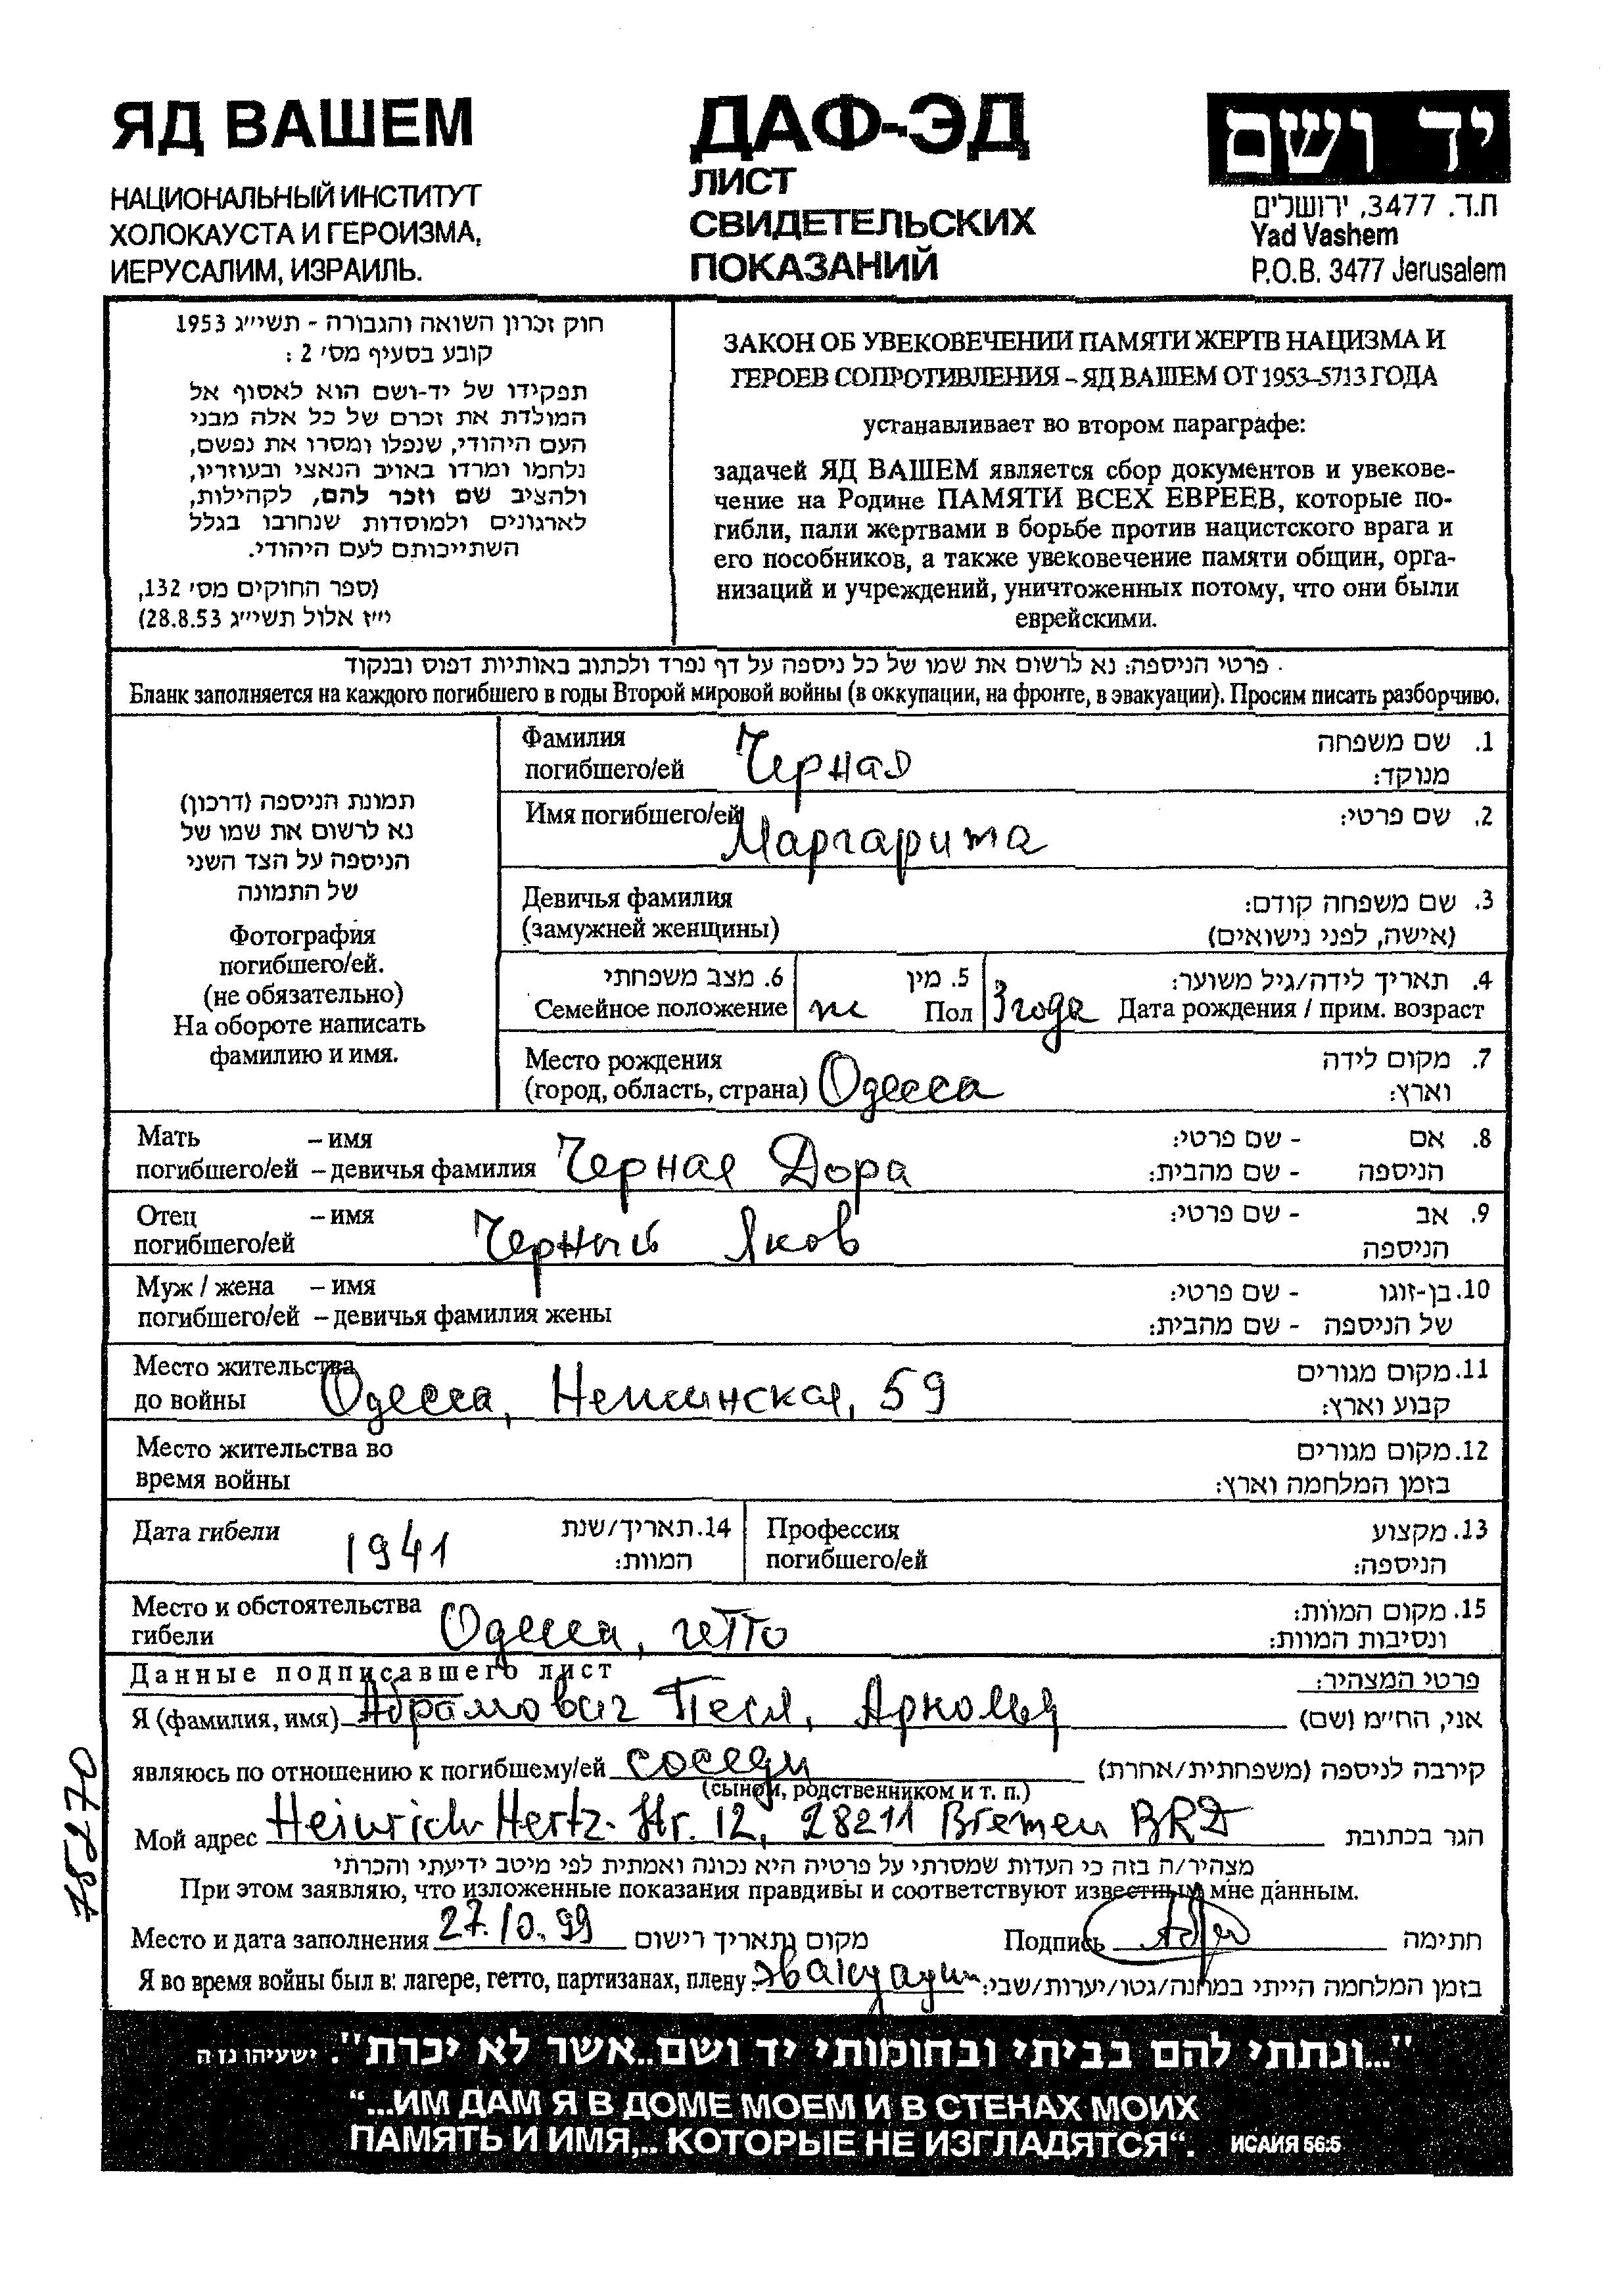 ЯД ВАШЕМ
НАЦИОНАЛЬНЫЙ ИНСТИТУТ
ХОЛОКАУСТА И ГЕРОИЗМА,
ИЕРУСАЛИМ, ИЗРАИЛЬ.
ДАФ-ЭД
ЛИСТ
СВИДЕТЕЛЬСКИХ
ПОКАЗАНИЙ
יד ושם
ת.ד. 3477, ירושלים
Yad Vashem
P.O.B. 3477 Jerusalem
חוק זכרון השואה והגבורה - תשי״ג 1953
קובע בסעיף מס׳ 2 :
תפקידו של יד-ושם הוא לאסוף אל
המולדת את זכרם של כל אלה מבני
העם היהודי, שנפלו ומסרו את נפשם,
נלחמו ומרדו באויב הנאצי ובעוזריו,
ולהציב שם וזכר להם, לקהילות,
לארגונים ולמוסדות שנחרבו בגלל
השתייכותם לעם היהודי.
(ספר החוקים מס׳ 132,
י״ז אלול תשי״ג 28.8.53)
ЗАКОН ОБ УВЕКОВЕЧЕНИИ ПАМЯТИ ЖЕРТВ НАЦИЗМА И
ГЕРОЕВ СОПРОТИВЛЕНИЯ – ЯД ВАШЕМ ОТ 1953–5713 ГОДА
устанавливает во втором параграфе:
задачей ЯД ВАШЕМ является сбор документов и увекове-
чение на Родине ПАМЯТИ ВСЕХ ЕВРЕЕВ, которые по-
гибли, пали жертвами в борьбе против нацистского врага и
его пособников, а также увековечение памяти общин, орга-
низаций и учреждений, уничтоженных потому, что они были
еврейскими.
פרטי הניספה: נא לרשום את שמו של כל ניספה על דף נפרד ולכתוב באותיות דפוס ובנקוד
Бланк заполняется на каждого погибшего в годы Второй мировой войны (в оккупации, на фронте, в эвакуации). Просим писать разборчиво.
תמונת הניספה (דרכון)
נא לרשום את שמו של
הניספה על הצד השני
של התמונה
Фотография
погибшего/ей.
(не обязательно)
На обороте написать
фамилию и имя.
Фамилия Черная 1. שם משפחה
погибшего/ей מנוקד:
Имя погибшего/ей Маргарита 2. שם פרטי:
Девичья фамилия 3. שם משפחה קודם:
(замужней женщины) (אישה, לפני נישואים)
6. מצב משפחתי 5. מין 4. תאריך לידה/גיל משוער:
Семейное положение ж Пол 3 года Дата рождения / прим. возраст
Место рождения 7. מקום לידה
(город, область, страна) Одесса וארץ:
Мать – имя 8. אם - שם פרטי:
погибшего/ей – девичья фамилия Черная Дора הניספה - שם מהבית:
Отец – имя Черный Яков 9. אב - שם פרטי:
погибшего/ей הניספה
Муж / жена – имя 10. בן-זוגו - שם פרטי:
погибшего/ей – девичья фамилия жены של הניספה - שם מהבית:
Место жительства 11. מקום מגורים
до войны Одесса, Нежинская, 59 קבוע וארץ:
Место жительства во 12. מקום מגורים
время войны בזמן המלחמה וארץ:
Дата гибели 1941 14. תאריך/שנת Профессия 13. מקצוע
המוות: погибшего/ей הניספה:
Место и обстоятельства 15. מקום המוות:
гибели Одесса, гетто ונסיבות המוות:
Данные подписавшего лист פרטי המצהיר:
Я (фамилия, имя) Абрамович Песя, Арнольд אני, הח״מ (שם)
являюсь по отношению к погибшему/ей соседи קירבה לניספה (משפחתית/אחרת)
(сыном, родственником и т. п.)
Мой адрес Heinrich Hertz-Str. 12, 28211 Bremen BRD הגר בכתובת
מצהיר/ה בזה כי העדות שמסרתי על פרטיה היא נכונה ואמתית לפי מיטב ידיעתי והכרתי
При этом заявляю, что изложенные показания правдивы и соответствуют известным мне данным.
Место и дата заполнения 27.10.99 מקום ותאריך רישום Подпись חתימה
Я во время войны был в: лагере, гетто, партизанах, плену эвакуации בזמן המלחמה הייתי במחנה/גטו/יערות/שבי:
752270
"...ונתתי להם בביתי ובחומותי יד ושם..אשר לא יכרת". ישעיהו נו ה
“...ИМ ДАМ Я В ДОМЕ МОЕМ И В СТЕНАХ МОИХ
ПАМЯТЬ И ИМЯ,.. КОТОРЫЕ НЕ ИЗГЛАДЯТСЯ“. ИСАИЯ 56:5